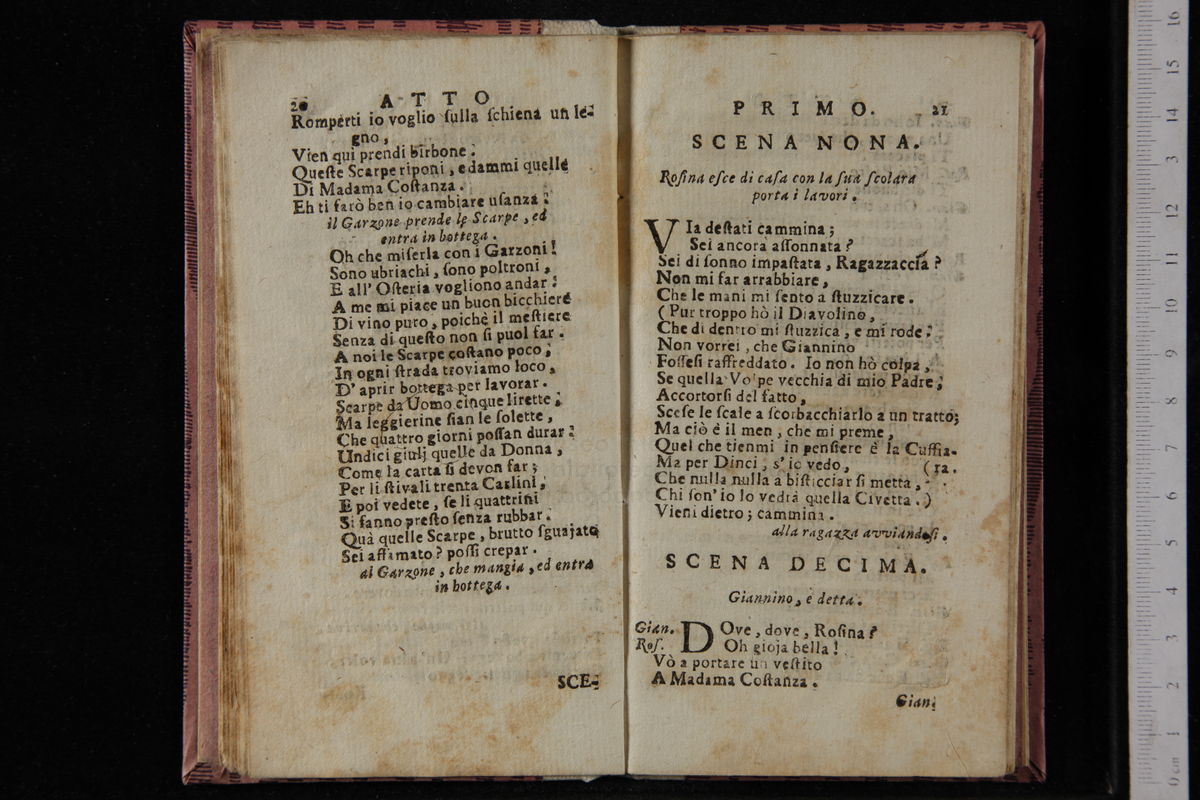 20 ATTO
Romperti io voglio ſulla ſchiena un le-
gno,
Vien qui prendi birbone:
Queſte Scarpe riponi, e dammi quelle
Di Madama Coſtanza.
Eh ti farò ben io cambiare uſanza:
il Garzone prende le Scarpe, ed
entra in bottega.
Oh che miſeria con i Garzoni!
Sono ubriachi, ſono poltroni,
E all' Oſteria vogliono andar:
A me mi piace un buon bicchiere
Di vino puro, poichè il meſtiere
Senza di queſto non ſi puol far.
A noi le Scarpe coſtano poco;
In ogni ſtrada troviamo loco,
D' aprir bottega per lavorar.
Scarpe da Uomo cinque lirette;
Ma leggierine ſian le ſolette,
Che quattro giorni poſſan durar:
Undici giulj quelle da Donna,
Come la carta ſi devon far;
Per li ſtivali trenta Carlini,
E poi vedete, ſe li quattrini
Si fanno preſto ſenza rubbar.
Quà quelle Scarpe, brutto ſguajato
Sei affamato? poſſi crepar.
al Garzone, che mangia, ed entra
in bottega.
SCE-
PRIMO. 21
SCENA NONA.
Roſina eſce di caſa con la ſua ſcolara
porta i lavori.
VIa deſtati cammina;
Sei ancora aſſonnata?
Sei di ſonno impaſtata, Ragazzaccia?
Non mi far arrabbiare,
Che le mani mi ſento a ſtuzzicare.
(Pur troppo hò il Diavolino,
Che di dentro mi ſtuzzica, e mi rode:
Non vorrei, che Giannino
Foſſeſi raffreddato. Io non hò colpa,
Se quella Volpe vecchia di mio Padre;
Accortorſi del fatto,
Sceſe le ſcale a ſcorbacchiarlo a un tratto;
Ma ciò è il men, che mi preme,
Quel che tienmi in penſiere è la Cuffia-
Ma per Dinci, s' io vedo, (ra.
Che nulla nulla a biſticciar ſi metta,
Chi ſon' io lo vedrà quella Civetta.)
Vieni dietro; cammina.
alla ragazza avviandoſi.
SCENA DECIMA.
Giannino, e detta.
Gian. DOve, dove, Roſina?
Roſ. Oh gioja bella!
Vò a portare un veſtito
A Madama Coſtanza.
Gian.
16
15
14
13
12
11
10
9
8
7
6
5
4
3
2
1
0 cm